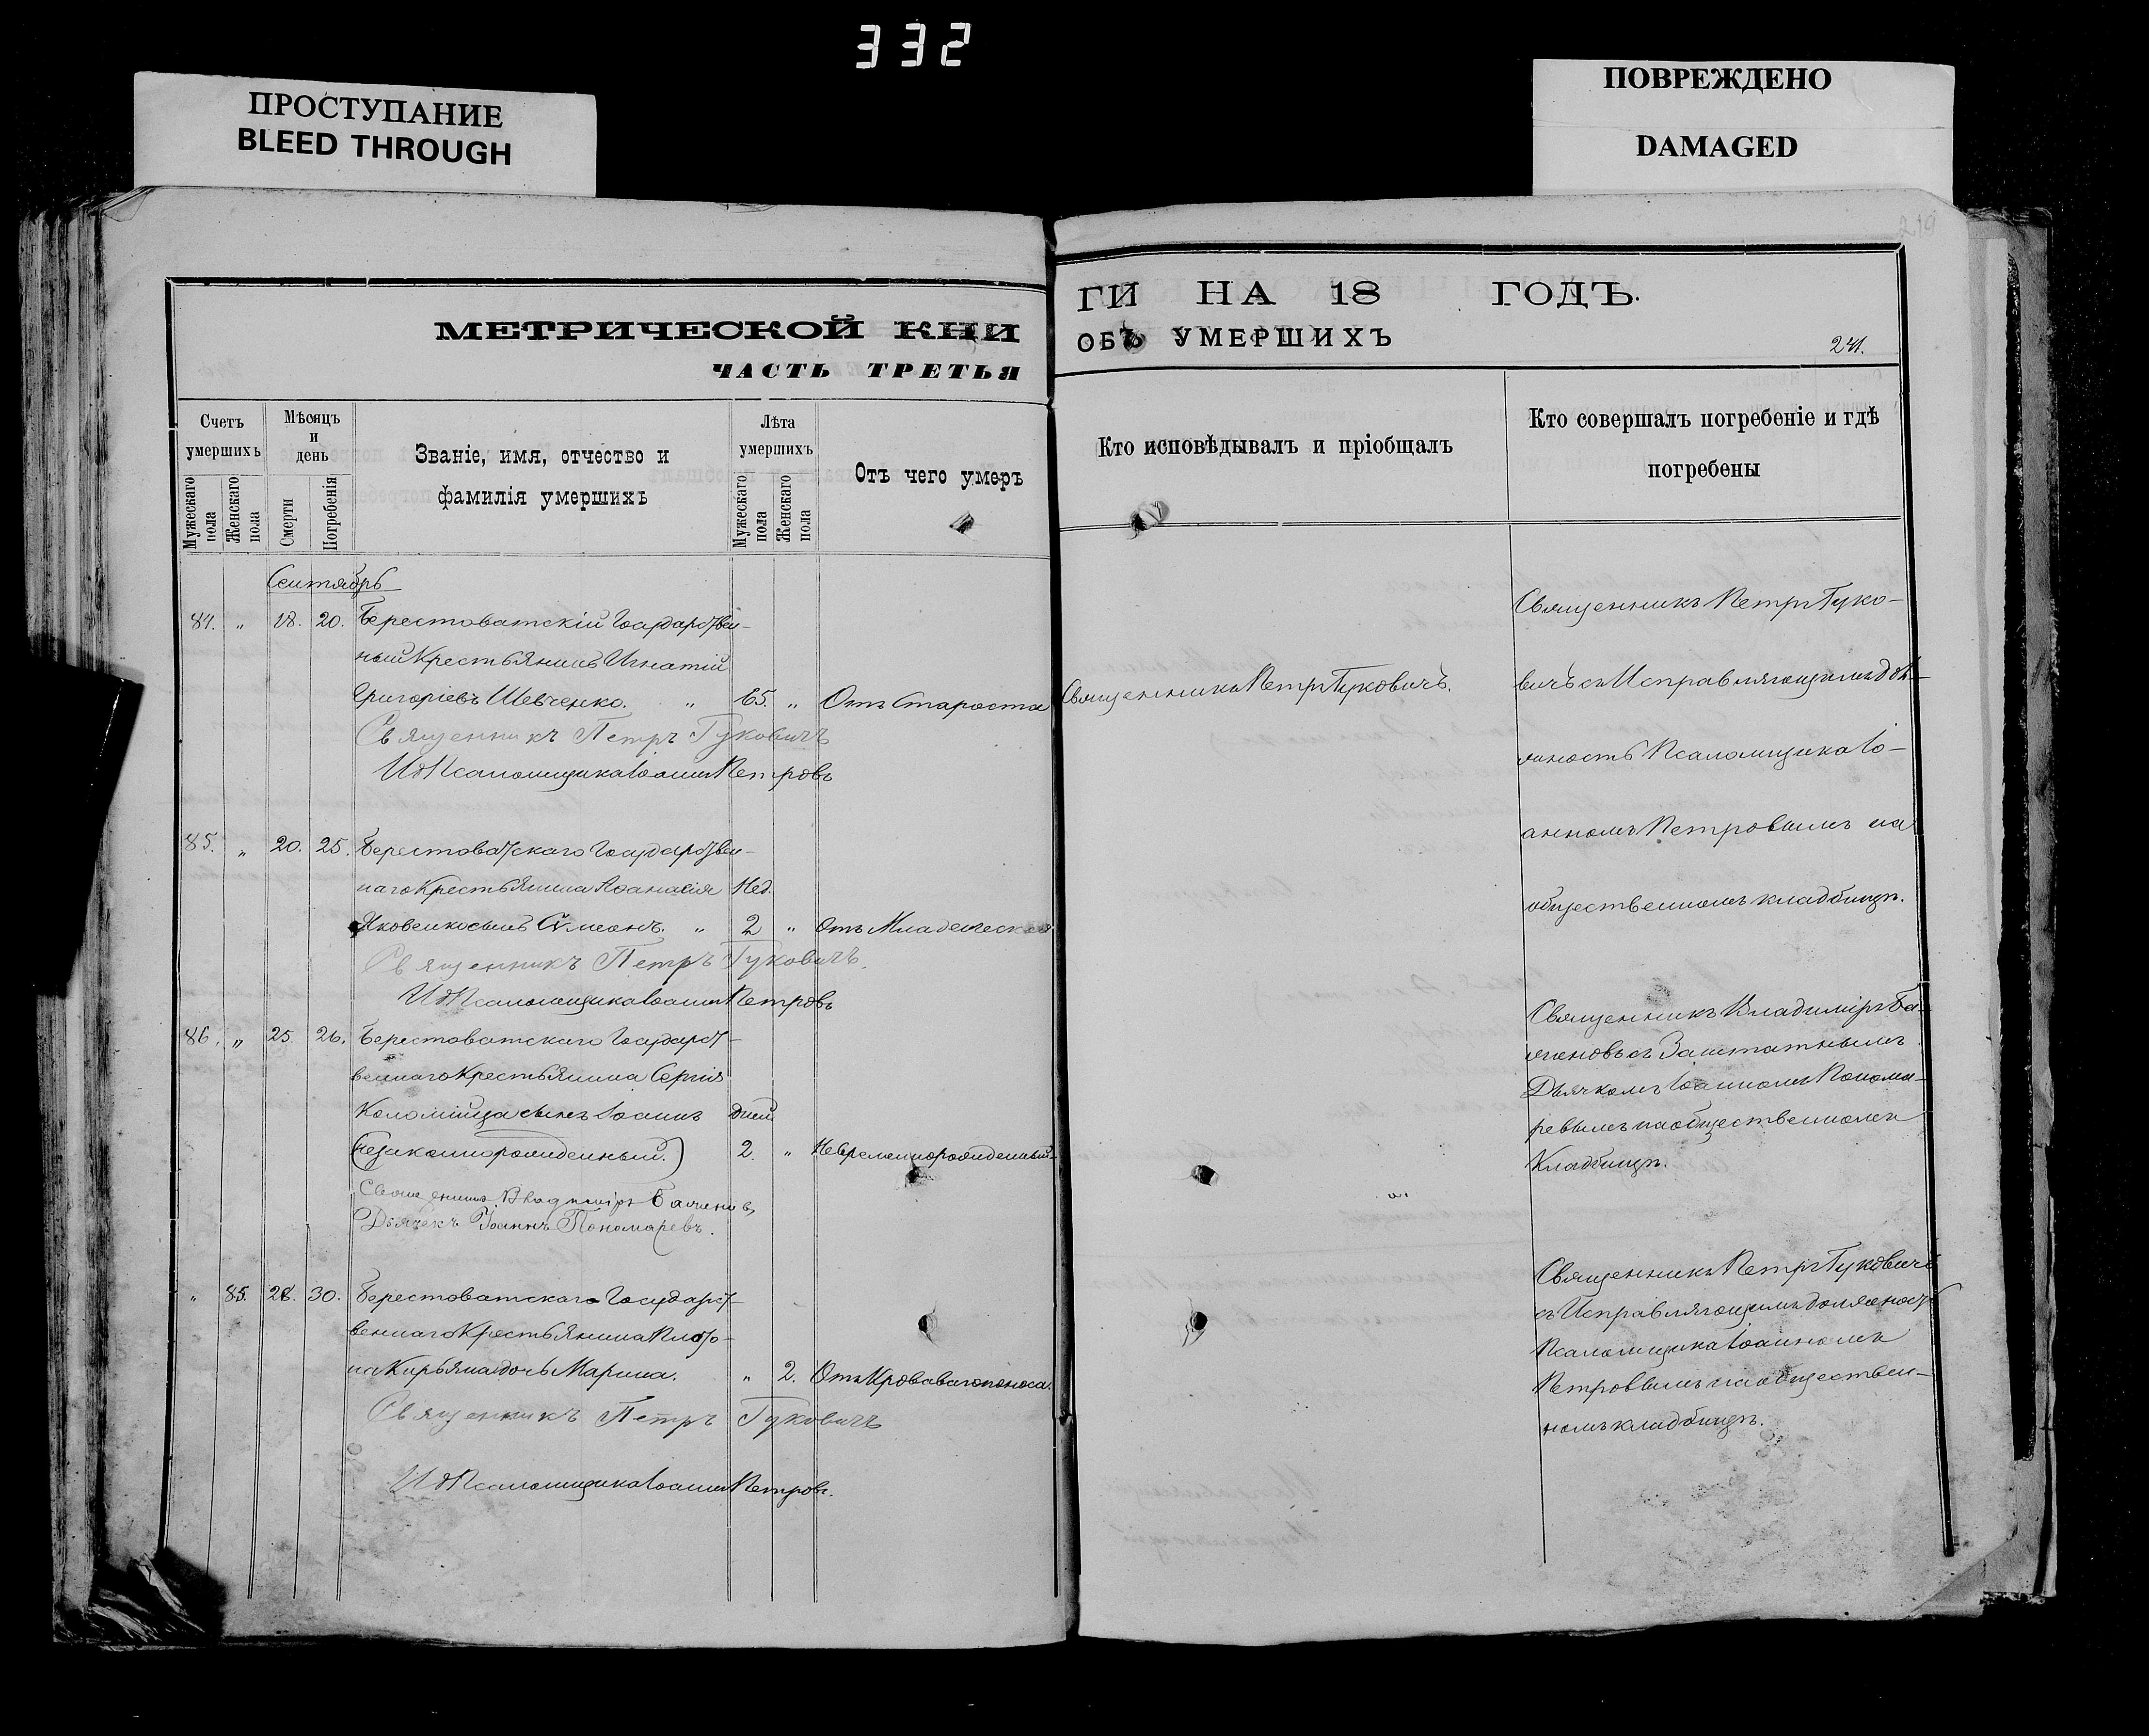 332
ПРОСТУПАНИЕ
BLEED THROUGH
ПОВРЕЖДЕНО
DAMAGED
МЕТРИЧЕСКОЙ КНИ
ЧАСТЬ ТРЕТЬЯ
Счетъ умершихъ
Мужескаго пола
Женскаго пола
Мѣсяцъ и день
Смерти
Погребенія
Званіе, имя, отчество и
фамилія умершихъ
Лѣта умершихъ
Мужескаго пола
Женскаго пола
Отъ чего умеръ
Сентябрь
84. „ 18. 20. Берестоватскій Государствен-
ный Крестьянинъ Игнатій
Григоріевъ Шевченко. „ 65. „ Отъ Старости
Священникъ Петръ Гуковичъ
И д Псаломщика Іоаннъ Петровъ
85. „ 20. 25. Берестоватскаго Государствен-
наго Крестьянина Аѳанасія Нед.
Яковенко сынъ Симеонъ. „ 2 „ Отъ Младенческой
Священникъ Петръ Гуковичъ.
И д Псаломщика Іоаннъ Петровъ
86. „ 25. 26. Берестоватскаго Государст-
веннаго Крестьянина Сергія
Коломійца сынъ Іоаннъ Дней
(незаконнорожденный.) 2. „ Невременнорожденный
Священникъ Владиміръ
Дьячекъ Іоаннъ Пономаревъ.
„ 85. 28. 30. Берестоватскаго Государст-
веннаго Крестьянина Плато-
на Кирьяна дочь Марина. „ 2. Отъ Кроваваго поноса.
Священникъ Петръ Гуковичъ
И д Псаломщика Іоаннъ Петровъ.
ГИ НА 18 ГОДЪ.
ОБЪ УМЕРШИХЪ
241.
Кто исповѣдывалъ и пріобщалъ
Кто совершалъ погребеніе и гдѣ
погребены
Священникъ Петръ Гуковичъ.
Священникъ Петръ Гуко-
вичъ съ Исправляющимъ дол-
жность Псаломщика Іо-
анномъ Петровымъ на
общественномъ кладбищѣ.
Священникъ Владиміръ
съ Заштатнымъ
Дьячкомъ Іоанномъ Понома-
ревымъ на общественномъ
Кладбищѣ.
Священникъ Петръ Гуковичъ
съ Исправляющимъ должность
Псаломщика Іоанномъ
Петровымъ на обществен-
номъ кладбищѣ.